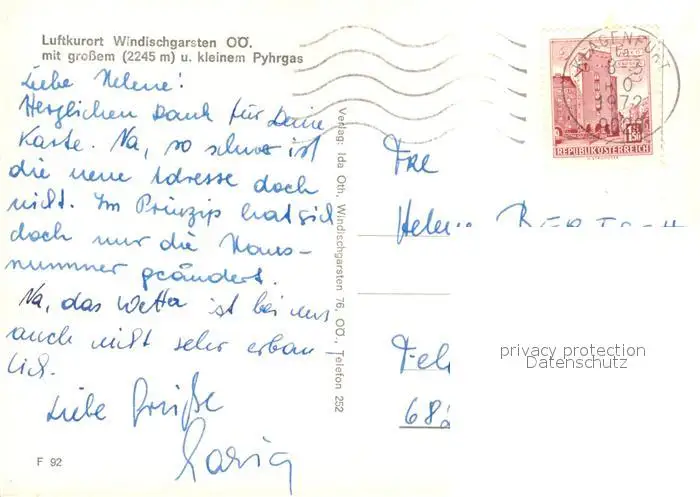 Luftkurort Windischgarsten OÖ.
mit großem (2245 m) u. kleinem Pyhrgas
Liebe Helene!
Herzlichen Dank für Deine
Karte. Na, so schwer ist
die neue Adresse doch
nicht. Im Prinzip hat sich
doch nur die Haus-
nummer geändert.
Na, das Wetter ist bei uns
auch nicht sehr erbau-
lich.
Liebe Grüße
F 92
Verlag: Ida Oth, Windischgarsten 76, OÖ., Telefon 252
KLAGENFURT
1972
REPUBLIK ÖSTERREICH
1.50
Helene
Feld
privacy protection
Datenschutz